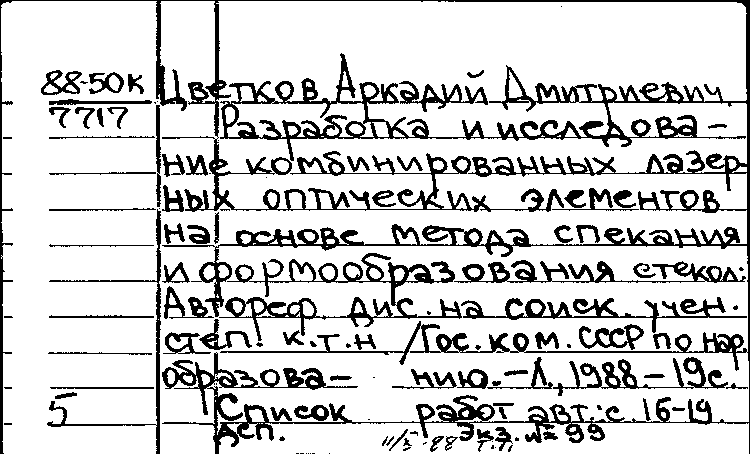 88-50к Цветков, Аркадий Дмитриевич.
7717 Разработка и исследова-
ние комбинированных лазер-
ных оптических элементов
на основе метода спекания
и формообразования стекол:
Автореф. дис. на соиск. учен.
степ. к.т.н /Гос. ком. СССР по нар.
образова- нию. - Л., 1988. - 19 с.
5 Список работ авт.: с. 16-19.
дсп. Экз. № 99